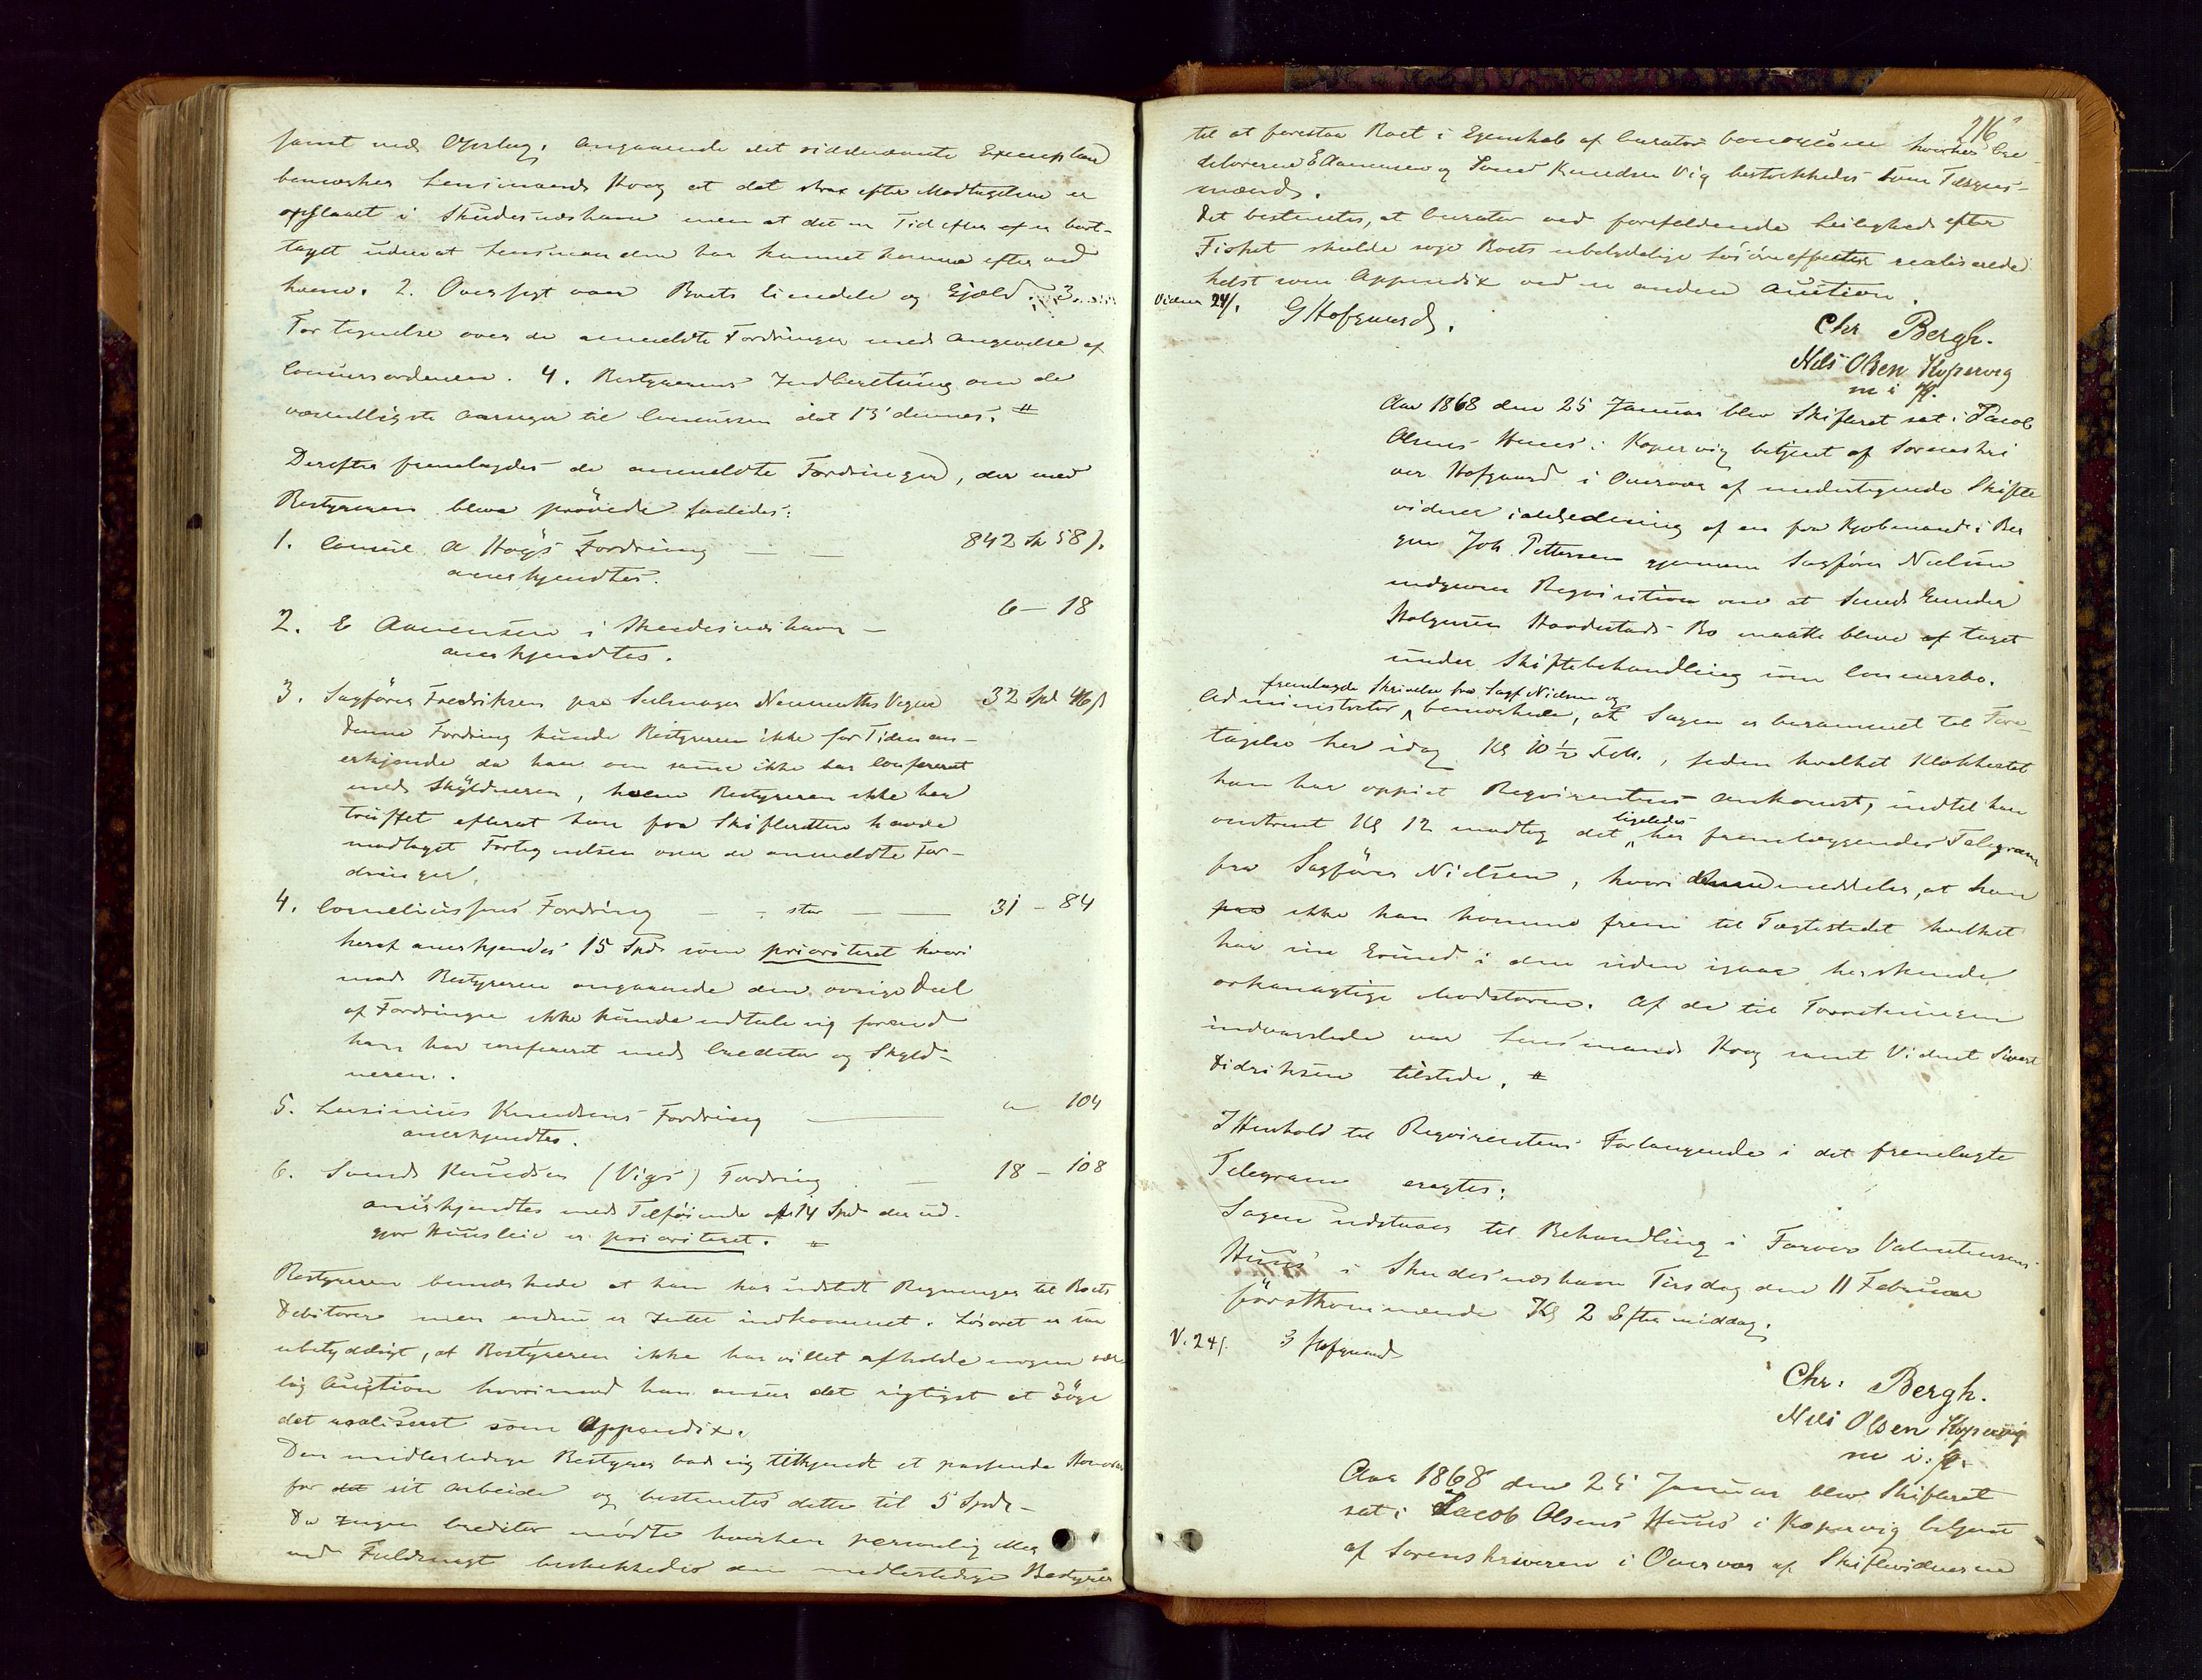 samt med Opslag. Angaaende det sidstnævnte Exemplar
bemærker Lensmand Hoog at det strax efter Modtagelsen er
opslaaet i Skudesnæshavn men at det en Tid efter er bort-
taget uden at Lensmanden har kunnet komme efter ved
hvem. 2. Oversigt over Boets Eiendele og Gjæld. 3.
Fortegnelse over de anmeldte Fordringer med Angivelse af
Concursordenen. 4. Bestyrerens Indberetning om de
væsentligste Aarsager til Concursen dat 13 dennes. #
Derefter fremlagdes de anmeldte Fordringer, der med
Bestyreren bleve prøvede saaledes:
1. Consul A Høgs Fordring — — 842 Sp 58 s.
anerkjendtes.
2. E Aanensen i Skudesnæshavn — 6 — 18
anerkjendtes.
3. Sagfører Fredriksen paa Vegne 32 Spd 46 s
Denne Fordring kunde Bestyreren ikke for Tiden an-
erkjende da han om samme ikke har confereret
med Skyldneren, hvem Bestyreren ikke har
truffet efterat han fra Skifteretten havde
modtaget Fortegnelsen over de anmeldte For-
dringer.
4. Corneliussens Fordring — - stor — — 31 — 84
heraf anerkjendes 15 Spd som prioriteret hvori
mod Bestyreren angaaende den øvrige Deel
af Fordringen ikke kunde udtale sig førend
han har confereret med Creditor og Skyld-
neren.
5. Knudsens Fordring — " 104
anerkjendtes.
6. Svend Knudsen (Vigs) Fordring — 18 — 108
anerkjendtes med Tilføiende at 14 Spd der ud-
gjør Huusleie er prioriteret. #
Bestyreren bemærkede at han har udstedt Regninger til Boets
Debitorer men endnu er Intet indkommet. Løsøret er saa
ubetydeligt, at Bestyreren ikke har villet afholde nogen sær-
lig Auction hvorimod han anser det rigtigst at søge
det realiseret som Appendix.
Den midlertidige Bestyrer bad sig tilkjendt et passende Honorar
for det sit Arbeide og bestemtes dette til 5 Spdr —
Da Ingen Creditor mødte hverken personlig eller
ved Fuldmægt beskikkedes den midlertidige Bestyrer
216
til at forestaa Boet i Egenskab af Curator bonorum hvorhos Cre-
ditorerne E Aanensen og Svend Knudsen Vig beskikkedes som Tilsyns-
mænd.
Det bestemtes, at Curator ved forefaldende Leilighed efter
Fisket skulde søge Boets ubetydelige Løsøreeffecter realiserede
helst som Appendix ved en anden Auction.
Vidner 24/. G Hofgaard.
Chr Bergh.
Nils Olsen Kopervig
m i P.
Aar 1868 den 25 Januar blev Skifteret sat i Jacob
Olsens Huus i Kopervig betjent af Sorenskri
ver Hofgaard i Overvær af undertegnede Skifte
vidner i anledning af en fra Kjøbmand i Ber
gen Joh Pettersen gjennem Sagfører Nielsen
indgiven Reqvisition om at
Bo maatte blive af taget
under Skiftebehandling som Concursbo.
fremlagde Skrivelse fra Sagf Nielsen og
Administrator bemærkede, at Sagen er berammet til Fore-
tagelse her idag Kl 10½ Fm., siden hvilket Klokkeslet
han har oppiet Reqvirentens Ankomst, indtil han
ligeledes
omtrent Kl 12 modtog det her fremlæggendes Telegram
fra Sagfører Nielsen, hvori denne meddeler, at han
paa ikke kan komme frem til Tægtestedet hvilket
har sin Grund i den siden igaar herskende
orkanagtige Modstorm. Af de til Forretningen
indvarslede var Lensmand Hoog samt Vidnet Sivert
Didriksen tilstede. #
I Henhold til Reqvirentens Forlangende i det fremlagte
Telegram eragtes:
Sagen udstaaes til Behandling i Valentinsens
Huus i Skudesnæshavn Tirsdag den 11 Februar
førstkommende Kl 2 Eftermiddag.
V. 24/. G Hofgaard
Chr: Bergh.
Nils Olsen Kopervig
m i. P.
Aar 1868 den 25 Januar blev Skifteret
sat i Jacob Olsens Huus i Kopervig betjent
af Sorenskriveren i Overvær af Skiftevidnerne